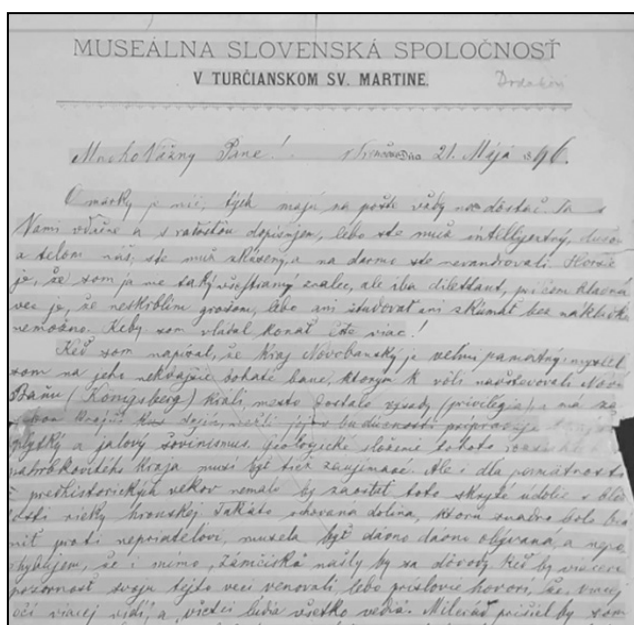 MUSEÁLNA SLOVENSKÁ SPOLOČNOSŤ
V TURČIANSKOM SV. MARTINE.
Mnoho Vážny Pane! 21. Mája 896.
O marky je nič, tých majú na pošte vždy dostač. Ja s
Vami vďačne a s radosťou dopisujem, lebo ste muž intelligentný, dušou
a telom náš, ste muž skúsený, a na darmo ste nevandrovali. Horšie
je, že som ja nie taký všestranný znalec, ale iba dilettant, pričom hlavná
vec je, že neskŕblim grošom, lebo ani študovať ani skúmať bez nákladku
nemožno. Keby som vládal konať ešte viac!
Keď som napísal, že Kraj Novobanský je veľmi pamätný, myslel
som na jeho nekdajšie bohaté bane, ktorým k vôli navštevovali Novú
Baňu (Königsberg) králi, mesto dostalo výsady (privilégia) a má
krajší dejín, nežli jej v budúcnosti pripravuje
a jalový šovinismus. Geologické složenie tohoto
pahrbkovitého kraja musí byť tiež zaujímavé. Ale i dľa pamätnosti
z præhistorických vekov nemalo by zaostať toto skryté údolie v
rieky hronskej. Takáto schovaná dolina, ktorú snadno bolo
proti nepriateľovi, musela byť dávno dávno obývaná, a
že i mimo „Zámčiská" našly by sa dôvody, keď by viacerí
pozornosť svoju tejto veci venovali, lebo príslovie hovorí, že viacej
očí viacej vidí, a všetci ľudia všetko vedia. Milerád prišiel by som